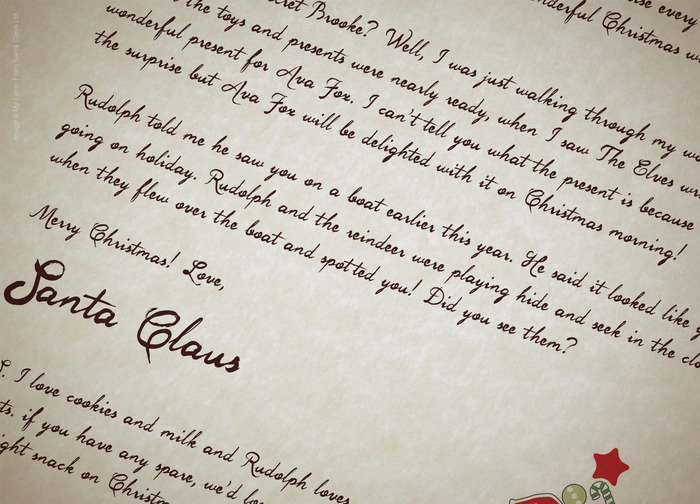 ise every
Brooke? Well, I was just walking through my
nderful Christmas w
the toys and presents were nearly ready, when I saw The Elves wr
wonderful present for Ava Fox. I can't tell you what the present is because
the surprise but Ava Fox will be delighted with it on Christmas morning!
Rudolph told me he saw you on a boat earlier this year. He said it looked like
going on holiday. Rudolph and the reindeer were playing hide and seek in the clo
when they flew over the boat and spotted you! Did you see them?
Merry Christmas! Love,
Santa Claus
S. I love cookies and milk and Rudolph loves
ts. if you have any spare, we'd lo
ight snack on Christm
Image © My Letter From Santa Claus Ltd